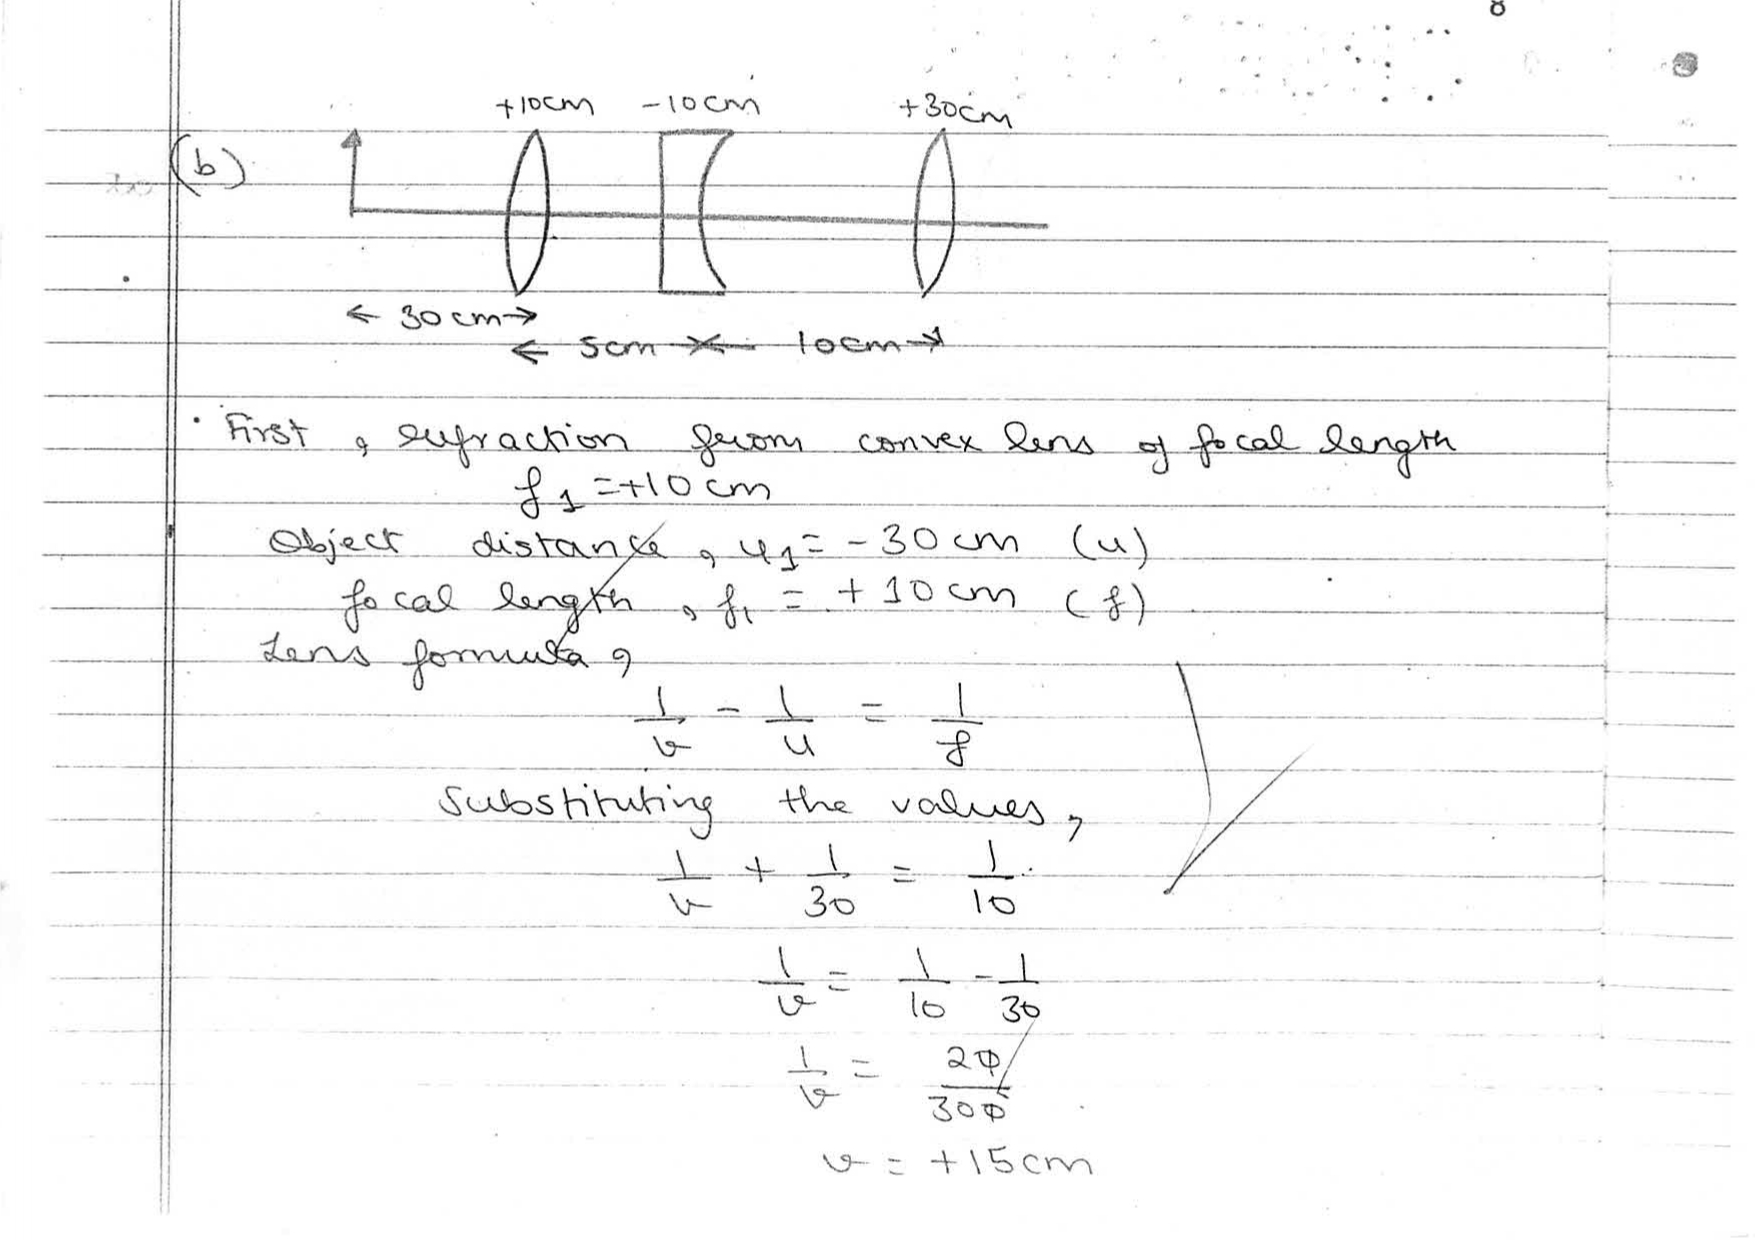 8
+10cm -10cm +30cm
(b)
← 30cm→
← 5cm →← 10cm→
· First, refraction from convex lens of focal length
f₁ =+10cm
Object distance, u₁= -30cm (u)
focal length, f₁ = +10cm (f)
Lens formula,
1/v - 1/u = 1/f
Substituting the values,
1/v + 1/30 = 1/10
1/v = 1/10 - 1/30
1/v = 20/300
v = +15cm